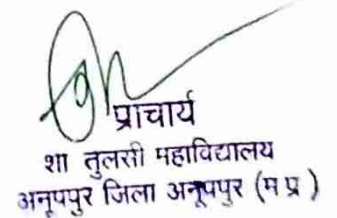 प्राचार्य
शा तुलसी महाविद्यालय
अनूपपुर जिला अनूपपुर (म प्र )